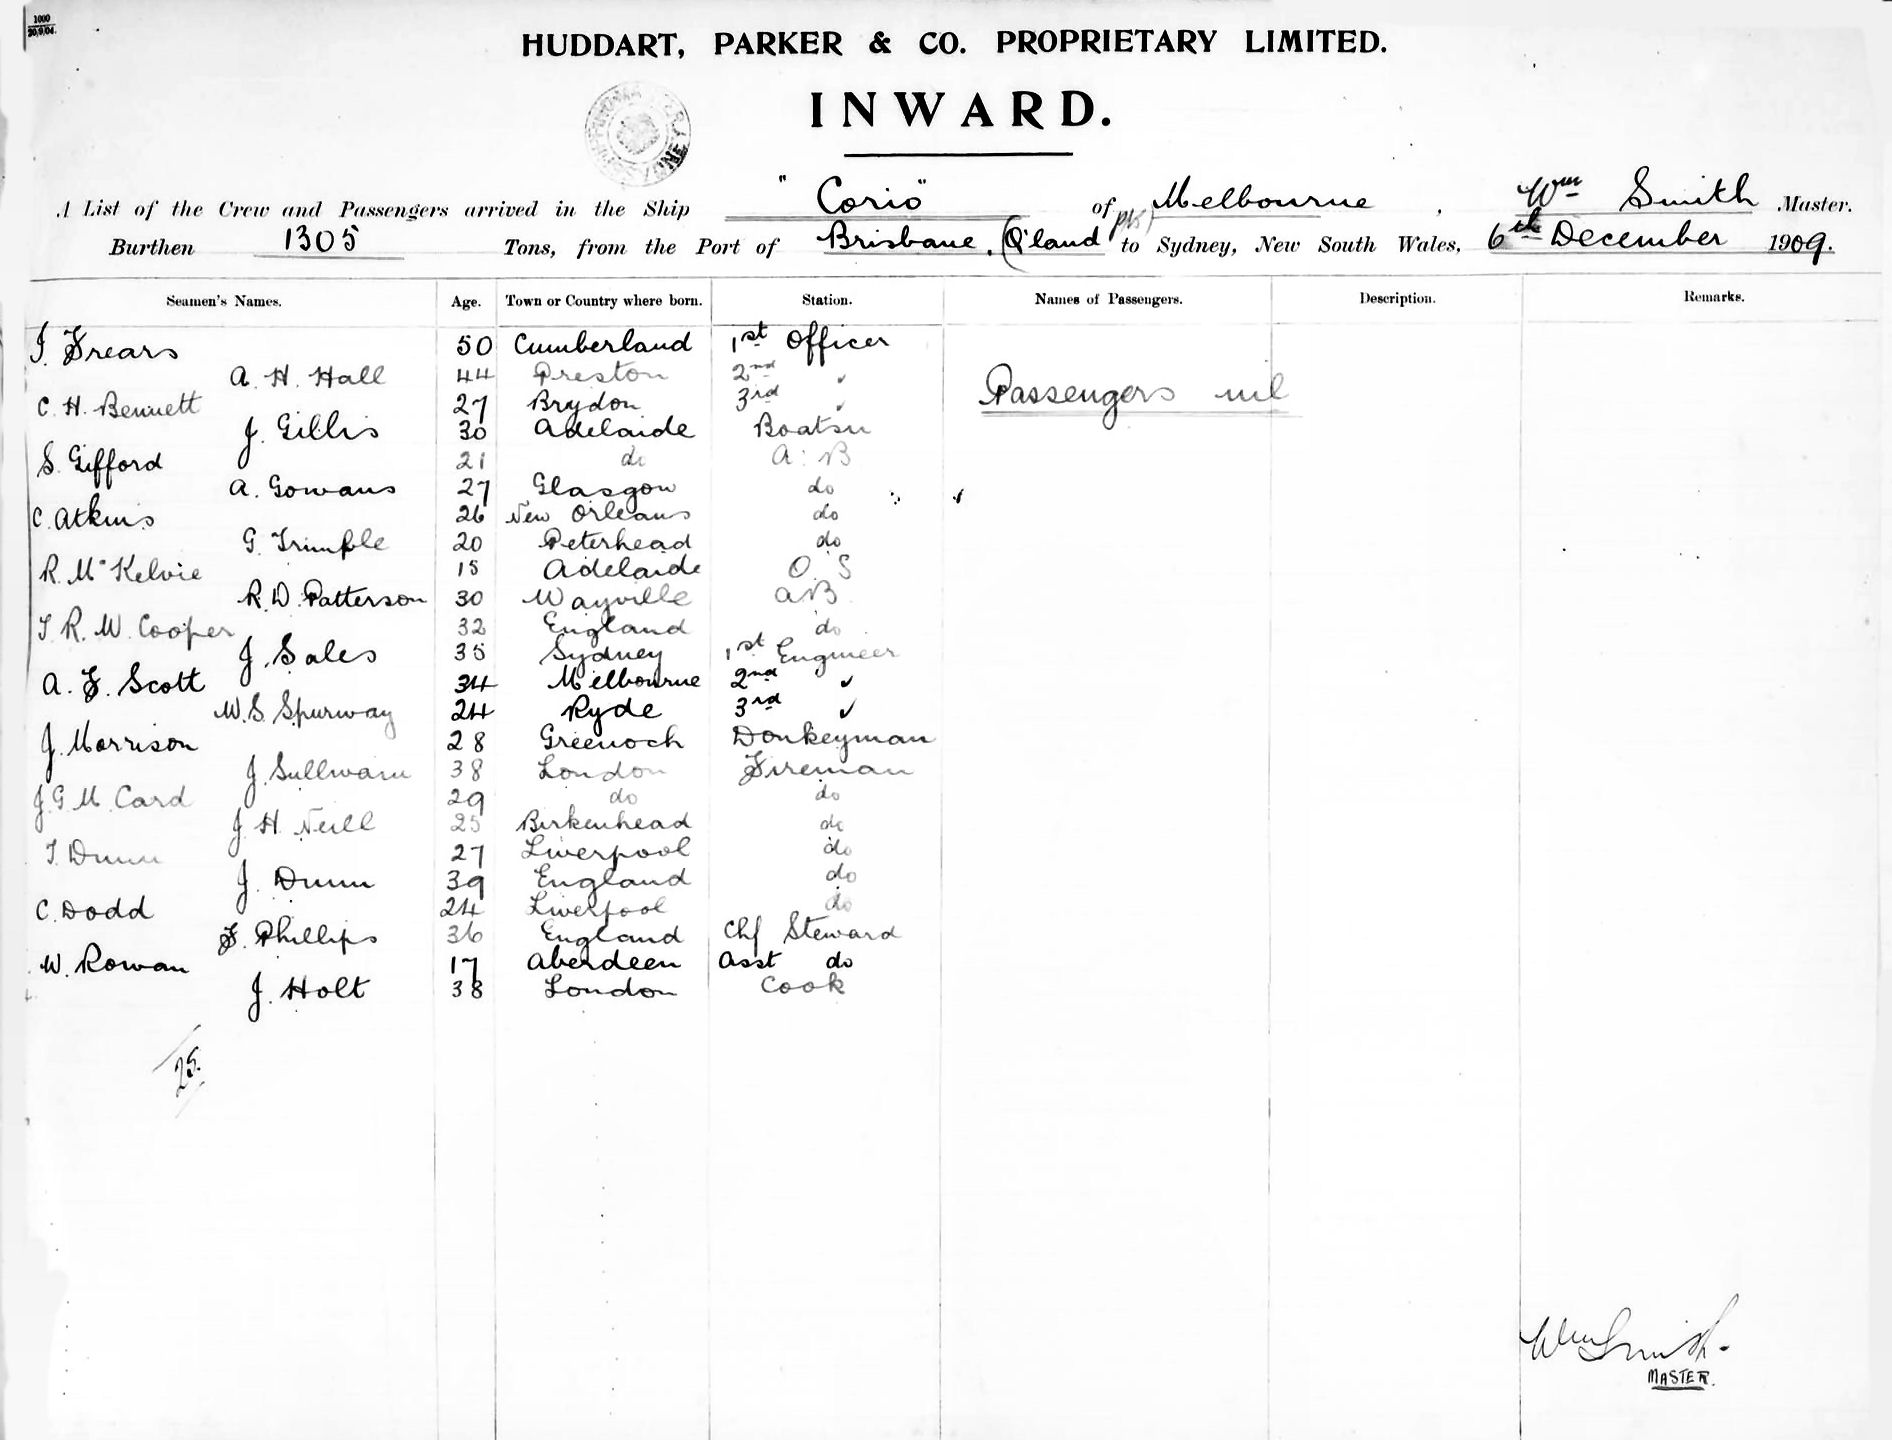 1000
20/9/04.
HUDDART, PARKER & CO. PROPRIETARY LIMITED.
INWARD.
A List of the Crew and Passengers arrived in the Ship "Corio" of Melbourne, Wm Smith Master.
Burthen 1305 Tons, from the Port of Brisbane, (Q'land to Sydney, New South Wales, 6th December 1909.
Seamen's Names. Age. Town or Country where born. Station. Names of Passengers. Description. Remarks.
J. Frears 50 Cumberland 1st Officer
A. H. Hall 44 Preston 2nd "
Passengers nil
C. H. Bennett 27 Brydon 3rd "
J. Gillis 30 Adelaide Boatsn
S. Gifford 21 do A. B
A. Gowans 27 Glasgow do
C. Atkins 26 New Orleans do
G. Trimple 20 Peterhead do
R. McKelvie 15 Adelaide O. S
R. D. Patterson 30 Wayville AB
T. R. W. Cooper 32 England do
J. Sales 35 Sydney 1st Engineer
A. F. Scott 34 Melbourne 2nd "
W. S. Spurway 24 Ryde 3rd "
J. Morrison 28 Greenoch Donkeyman
J. Sullivan 38 London Fireman
J. G. M. Card 29 do do
J. H. Neill 25 Birkenhead do
T. Dunn 27 Liverpool do
J. Dunn 39 England do
C. Dodd 24 Liverpool do
F. Phillips 36 England Chf Steward
W. Rowan 17 Aberdeen Asst do
J. Holt 38 London Cook
25.
Wm Smith.
MASTER.